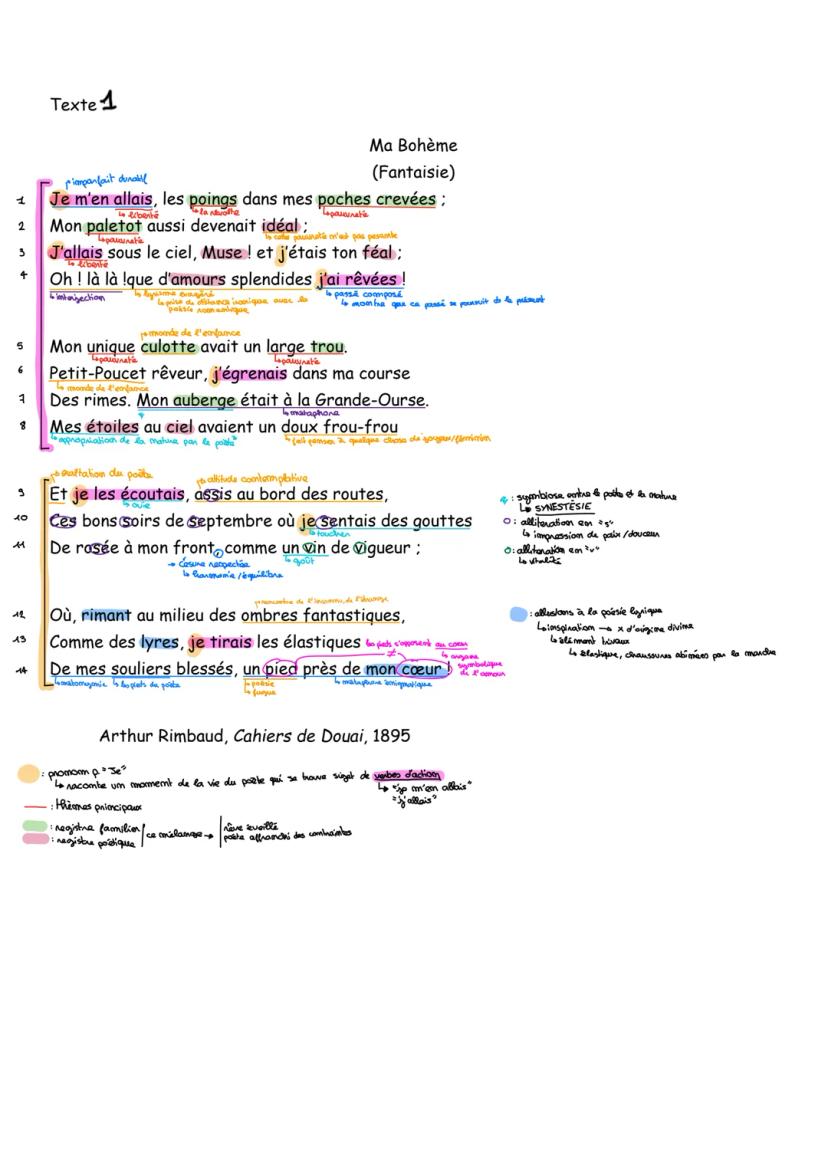 Texte 1
Ma Bohème
(Fantaisie)
↱ imparfait duratif
1 Je m'en allais, les poings dans mes poches crevées ;
↳ liberté ↳ la révolte ↳ pauvreté
2 Mon paletot aussi devenait idéal ;
↳ pauvreté ↳ cette pauvreté n'est pas pesante
3 J'allais sous le ciel, Muse ! et j'étais ton féal ;
↳ liberté
4 Oh ! là là !que d'amours splendides j'ai rêvées !
↳ interjection ↳ lyrisme exagéré ↳ passé composé
↳ prise de distance ironique avec la poésie romantique ↳ montre que ce passé se poursuit ds le présent
↱ monde de l'enfance
5 Mon unique culotte avait un large trou.
↳ pauvreté ↳ pauvreté
6 Petit-Poucet rêveur, j'égrenais dans ma course
↳ monde de l'enfance
7 Des rimes. Mon auberge était à la Grande-Ourse.
↳ métaphore
8 Mes étoiles au ciel avaient un doux frou-frou
↳ appropriation de la nature par le poète ↳ fait penser à quelque chose de soyeux/féminin
↱ exaltation du poète ↱ attitude contemplative
9 Et je les écoutais, assis au bord des routes,
↳ ouïe
10 Ces bons soirs de septembre où je sentais des gouttes
↳ toucher
11 De rosée à mon front, comme un vin de vigueur ;
→ césure respectée ↳ goût
↳ harmonie/équilibre
: symbiose entre le poète et la nature
↳ SYNESTÉSIE
: allitération en "s"
↳ impression de paix/douceur
: allitération en "v"
↳ vitalité
↱ rencontre de l'inconnu, de l'étrange
12 Où, rimant au milieu des ombres fantastiques,
13 Comme des lyres, je tirais les élastiques
les pieds s'opposent au cœur
≠ ↳ organe symbolique de l'amour
14 De mes souliers blessés, un pied près de mon cœur !
↳ métonymie ↳ les pieds du poète ↳ poésie ↳ métaphore énigmatique
↳ fugue
: allusions à la poésie lyrique
↳ inspiration → x d'origine divine
↳ élément triviaux
↳ élastique, chaussures abîmées par la marche
Arthur Rimbaud, Cahiers de Douai, 1895
: pronom p. "Je"
↳ raconte un moment de la vie du poète qui se trouve sujet de verbes d'action
↳ "je m'en allais"
"j'allais"
: thèmes principaux
: registre familier
: registre poétique
ce mélange →
rêve éveillé
poète affranchi des contraintes